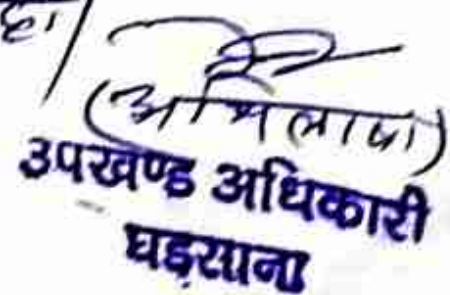 है।
(अभिलाषा)
उपखण्ड अधिकारी
घड़साना